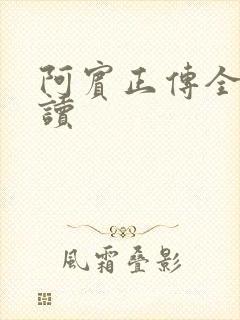 阿賓正傳全
讀
風霜疊影